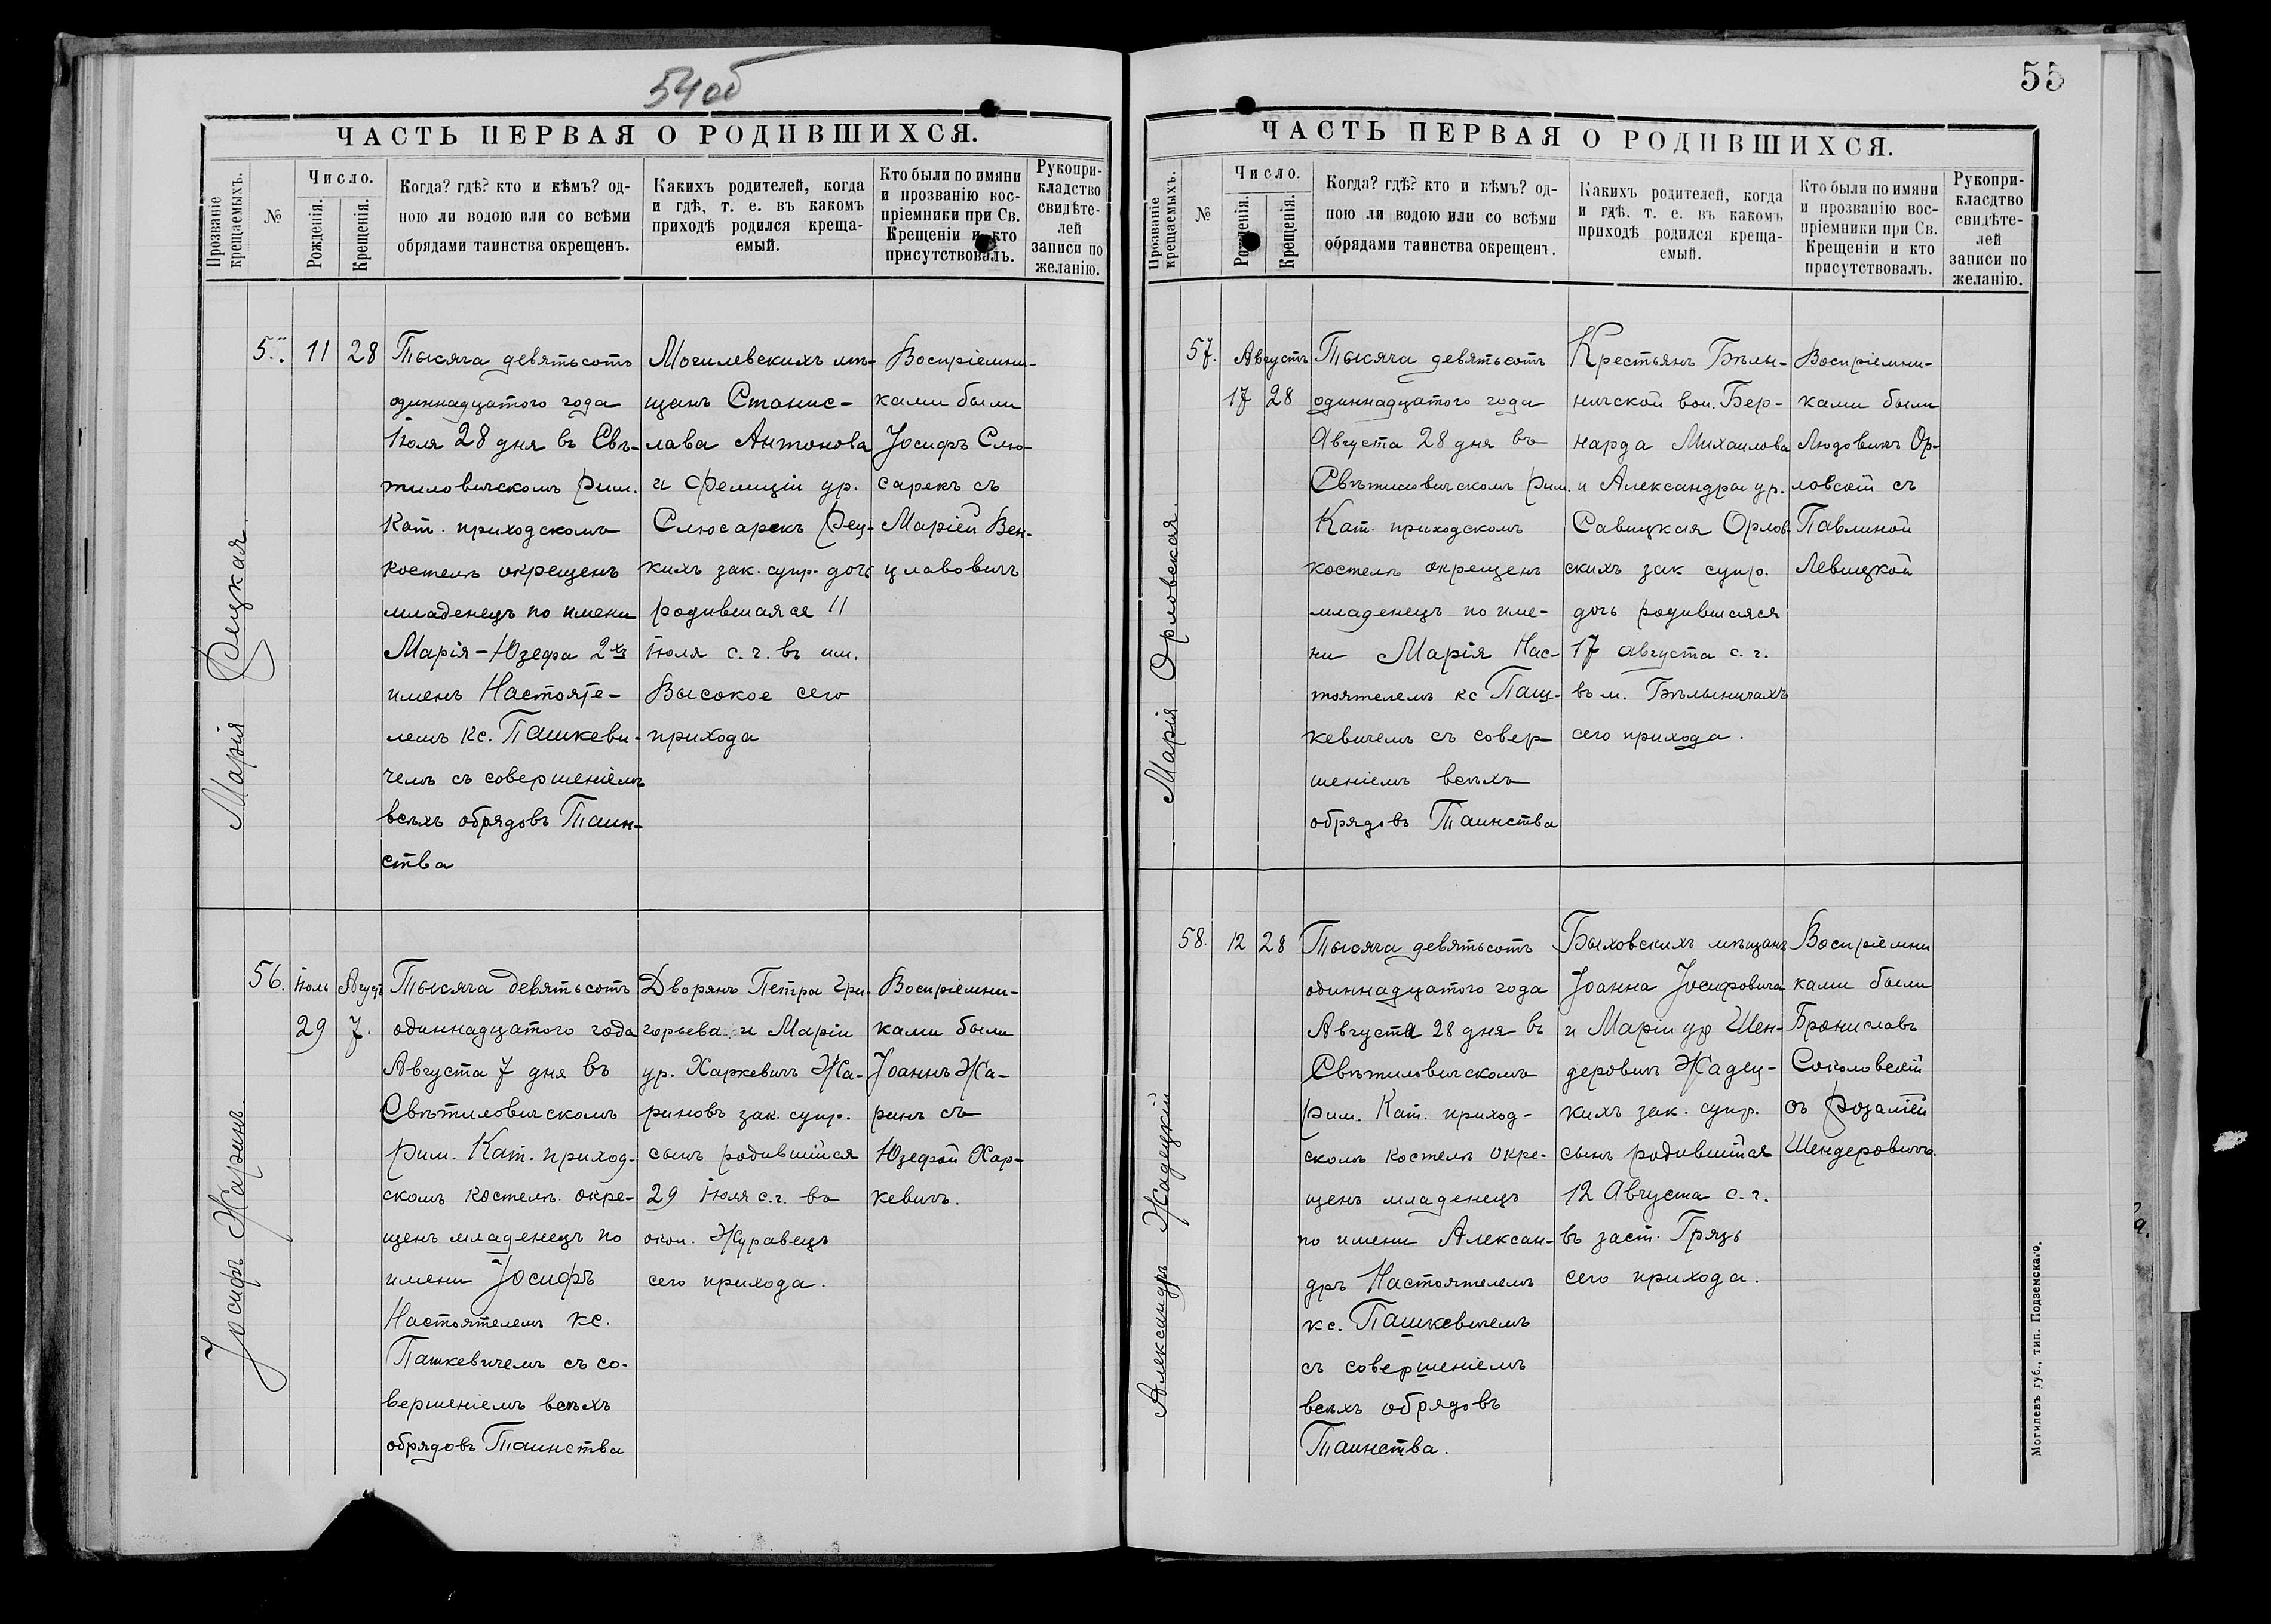 54об
ЧАСТЬ ПЕРВАЯ О РОДИВШИХСЯ.
Прозваніе крещаемыхъ.
№
Число.
Рожденія.
Крещенія.
Когда? гдѣ? кто и кѣмъ? од-
ною ли водою или со всѣми
обрядами таинства окрещенъ.
Какихъ родителей, когда
и гдѣ, т. е. въ какомъ
приходѣ родился креща-
емый.
Кто были по имяни
и прозванію вос-
пріемники при Св.
Крещеніи и кто
присутствовалъ.
Рукопри-
кладство
свидѣте-
лей
записи по
желанію.
Марія Рецкая.
5
11
28
Тысяча девятьсотъ
одиннадцатого года
Іюля 28 дня въ Свѣ-
тиловичскомъ Рим.
Кат. приходскомъ
костелѣ окрещенъ
младенецъ по имени
Марія-Юзефа 2хъ
именъ Настояте-
лемъ кс. Пашкеви-
чемъ съ совершеніемъ
всѣхъ обрядовъ Таин-
ства
Могилевскихъ мѣ-
щанъ Станис-
лава Антонова
и Фелиціи ур.
Слюсарекъ Рец-
кихъ зак. супр. дочь
родившаяся 11
Іюля с. г. въ им.
Высокое сего
прихода
Воспріемни-
ками были
Іосифъ Слю-
сарекъ съ
Маріей Вен-
цлавовичъ
Іосифъ Жаринъ.
56.
Іюль
29
Августъ
7.
Тысяча девятьсотъ
одиннадцатого года
Августа 7 дня въ
Свѣтиловичскомъ
Рим. Кат. приход-
скомъ костелѣ окре-
щенъ младенецъ по
имени Іосифъ
Настоятелемъ кс.
Пашкевичемъ съ со-
вершеніемъ всѣхъ
обрядовъ Таинства
Дворянъ Петра Гри-
горьева и Маріи
ур. Харкевичъ Жа-
риновъ зак. супр.
сынъ родившійся
29 Іюля с. г. въ
окол. Журавецъ
сего прихода.
Воспріемни-
ками были
Іоаннъ Жа-
ринъ съ
Юзефой Хар-
кевичъ.
55
ЧАСТЬ ПЕРВАЯ О РОДИВШИХСЯ.
Прозваніе крещаемыхъ.
№
Число.
Рожденія.
Крещенія.
Когда? гдѣ? кто и кѣмъ? од-
ною ли водою или со всѣми
обрядами таинства окрещенъ.
Какихъ родителей, когда
и гдѣ, т. е. въ какомъ
приходѣ родился креща-
емый.
Кто были по имяни
и прозванію вос-
пріемники при Св.
Крещеніи и кто
присутствовалъ.
Рукопри-
кладство
свидѣте-
лей
записи по
желанію.
Марія Орловская.
57.
Августъ
17
28
Тысяча девятьсотъ
одиннадцатого года
Августа 28 дня въ
Свѣтиловичскомъ Рим.
Кат. приходскомъ
костелѣ окрещенъ
младенецъ по име-
ни Марія Нас-
тоятелемъ кс Паш-
кевичемъ съ совер-
шеніемъ всѣхъ
обрядовъ Таинства
Крестьянъ Бѣлы-
ничской вол. Бер-
нарда Михаилова
и Александры ур.
Савицкая Орлов-
скихъ зак супр.
дочь родившаяся
17 августа с. г.
въ м. Бѣлыничахъ
сего прихода.
Воспріемни-
ками были
Людовикъ Ор-
ловскій съ
Павлиной
Левицкой
Александръ Жадецкій
58.
12
28
Тысяча девятьсотъ
одиннадцатого года
Августа 28 дня въ
Свѣтиловичскомъ
Рим. Кат. приход-
скомъ костелѣ окре-
щенъ младенецъ
по имени Алексан-
дръ Настоятелемъ
кс. Пашкевичемъ
съ совершеніемъ
всѣхъ обрядовъ
Таинства.
Быховскихъ мѣщанъ
Іоанна Іосифовича
и Маріи ур Шен-
деровичъ Жадец-
кихъ зак. супр.
сынъ родившійся
12 Августа с. г.
въ заст. Грязь
сего прихода.
Воспріемни
ками были
Брониславъ
Соколовскій
съ Розаліей
Шендеровичъ.
Могилевъ губ., тип. Подземскаго.